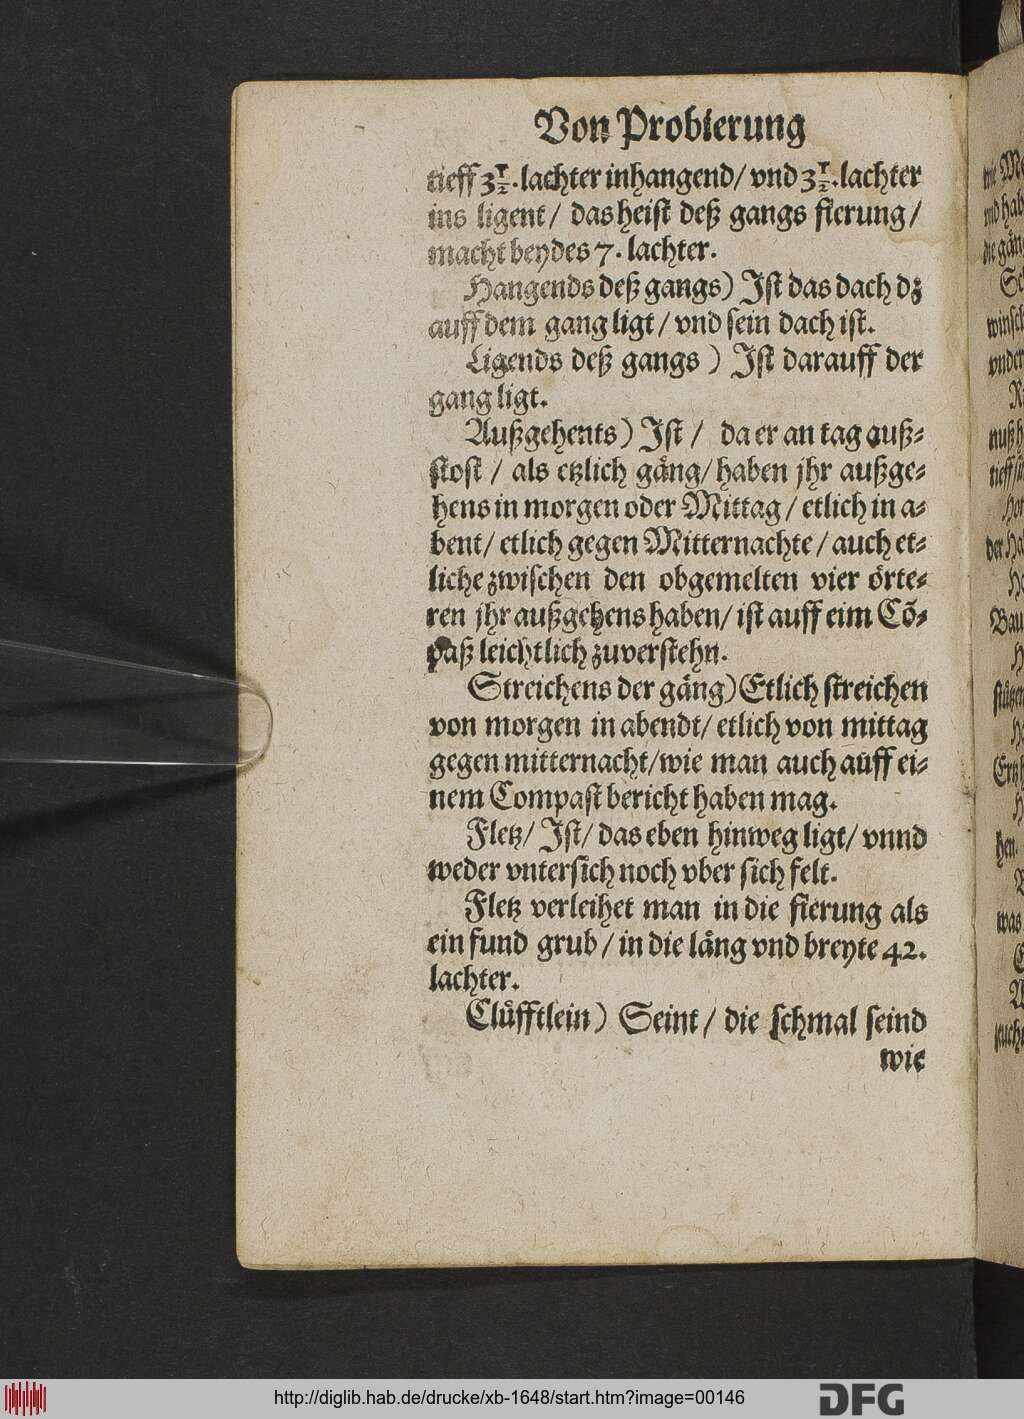 Von Probierung
tieff 3 1/2. lachter inhangend/ vnd 3 1/2. lachter
ins ligent/ das heist deß gangs fierung/
macht beydes 7. lachter.
Hangends deß gangs) Ist das dach dz
auff dem gang ligt/ vnd sein dach ist.
Ligends deß gangs) Ist darauff der
gang ligt.
Außgehents) Ist/ da er an tag auß-
stost/ als etzlich gäng/ haben jhr außge-
hens in morgen oder Mittag/ etlich in a-
bent/ etlich gegen Mitternachte/ auch et-
liche zwischen den obgemelten vier örte-
ren jhr außgehens haben/ ist auff eim Cõ-
paß leichtlich zuverstehn.
Streichens der gäng) Etlich streichen
von morgen in abendt/ etlich von mittag
gegen mitternacht/ wie man auch auff ei-
nem Compast bericht haben mag.
Fletz/ Ist/ das eben hinweg ligt/ vnnd
weder vntersich noch vber sich felt.
Fletz verleihet man in die fierung als
ein fund grub/ in die läng vnd breyte 42.
lachter.
Clüfftlein) Seint/ die schmal seind
wie
http://diglib.hab.de/drucke/xb-1648/start.htm?image=00146
DFG